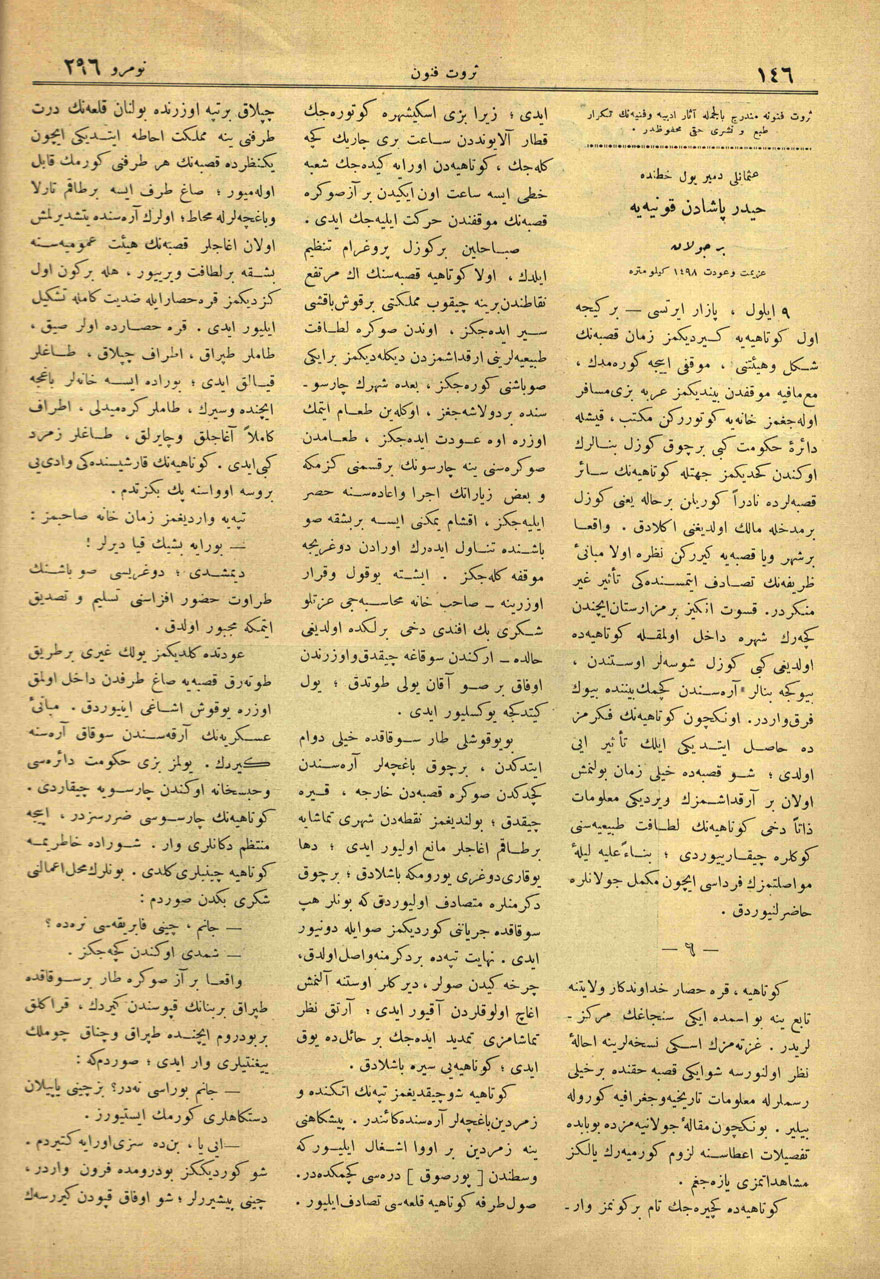 ١٤٦
ثروت فنون
نومرو ٢٩٦
ثروت فنونه مندرج بالجمله آثار ادبیه وفنیه‌نك تكرار
طبع و نشری حق محفوظدر .
عثمانلی دمیر یول خطنده
حیدر پاشادن قونیه‌یه
بر جولانه
عزیمت وعودت ١٤٩٨ كیلومتره
٩ ایلول ، پازار ایرتسی — بر كیجه
اول كوتاهیه‌یه كیردیكمز زمان قصبه‌نك
شكل وهیئتنی ، موقفی اییجه كوره‌مدك ،
مع‌مافیه موقفدن بیندیكمز عربه بزی مسافر
اوله‌جغمز خانه‌یه كوتورركن مكتب ، قیشله
دائرهٔ حكومت كبی برچوق كوزل بنالرك
اوكندن كچدیكمز جهتله كوتاهیه‌نك سائر
قصبه‌لرده نادراً كوریلن برحاله یعنی كوزل
برمدخله مالك اولدیغنی اكلادق . واقعا
برشهر ویا قصبه‌یه كیرركن نظره اولا مبانیٔ
ظریفه‌نك تصادف ایتمسنده‌كی تأثیر غیر
منكردر. قسوت انكیز برمزارستان ایچندن
كچه‌رك شهره داخل اولمقله كوتاهیه‌ده
اولدیغی كبی كوزل شوسه‌لر اوستندن ،
بیوكجه بنالر آره‌سندن كچمك بیننده بیوك
فرق واردر. اونكچون كوتاهیه‌نك فكرمز
ده حاصل ایتدیكی ایلك تأثیر ایی
اولدی ؛ شو قصبه‌ده خیلی زمان بولنمش
اولان بر آرقداشمزك ویردیكی معلومات
ذاتاً دخی كوتاهیه‌نك لطافت طبیعیه‌سنی
كوكلره چیقارییوردی ؛ بناءً علیه لیلهٔ
مواصلتمزك فرداسی ایچون مكمل جولانلره
حاضرلنیوردق .
— ٩ —
كوتاهیه ، قره حصار خداوندكار ولایتنه
تابع ینه بو اسمده ایكی سنجاغك مركز-
لریدر . غزته‌مزك اسكی نسخه‌لرینه احالهٔ
نظر اولنورسه شو ایكی قصبه حقنده برخیلی
رسملرله معلومات تاریخیه وجغرافیه كوروله
بیلیر . بونكچون مقالهٔ جولانیه‌مزده بوبابده
تفصیلات اعطاسنه لزوم كورمیه‌رك یالكز
مشاهداتمزی یازه‌جغم .
كوتاهیه‌ده كچیره‌جك تام بركونمز وار-
ایدی ؛ زیرا بزی اسكیشهره كوتوره‌جك
قطار آلایوندن ساعت بری چاریك كچه
كله‌جك ، كوتاهیه‌دن اورایه كیده‌جك شعبه
خطی ایسه ساعت اون ایكیدن بر آز صوكره
قصبه‌نك موقفندن حركت ایلیه‌جك ایدی .
صباحلین بركوزل پروغرام تنظیم
ایلدك . اولا كوتاهیه قصبه‌سنك اك مرتفع
نقاطندن برینه چیقوب مملكتی برقوش باقشی
سیر ایده‌جكز . اوندن صوكره لطافت
طبیعیه‌لرینی ارقداشمزدن دیكله‌دیكمز برایكی
صوباشنی كوره‌جكز ، بعده شهرك چارسو-
سنده بردولاشه‌جغز ، اوكله‌ین طعام ایتمك
اوزره اوه عودت ایده‌جكز ، طعامدن
صوكره‌سنی ینه چارسونك برقسمنی كزمكه
و بعض زیاراتك اجرا واعاده‌سنه حصر
ایلیه‌جكز ، اقشام یمكنی ایسه بربشقه صو
باشنده تناول ایده‌رك اورادن دوغریجه
موقفه كله‌جكز . ایشته بوقول وقرار
اوزرینه — صاحب خانه محاسبه‌جی عزتلو
شكری بك افندی دخی برلكده اولدیغی
حالده — اركندن سوقاغه چیقدق واوزرندن
اوفاق بر صو آقان یولی طوتدق ؛ یول
كیتدكجه یوكسلیور ایدی .
بویوقوشلی طار سوقاقده خیلی دوام
ایتدكدن ، برچوق باغچه‌لر آره‌سندن
كچدكدن صوكره قصبه‌دن خارجه ، قیره
چیقدق ؛ بولندیغمز نقطه‌دن شهری تماشایه
برطاقم اغاجلر مانع اولیور ایدی ؛ دها
یوقاری دوغری یورومكه باشلادق ؛ برچوق
دكرمنلره متصادف اولیوردق كه بونلر هپ
سوقاقده جریاننی كوردیكمز صوایله دونیور
ایدی . نهایت تپه‌ده بردكرمنه واصل اولدق،
چرخه كیدن صولر ، دیركلر اوستنه آلنمش
اغاج اولوقلردن آقیور ایدی ؛ آرتق نظر
تماشامزی تمدید ایده‌جك بر حائل‌ده یوق
ایدی ؛ كوتاهیه‌یی سیره باشلادق .
كوتاهیه شو چیقدیغمز تپه‌نك اتكنده و
زمردین باغچه‌لر آره‌سنده كائندر . پیشكاهی
ینه زمردین بر اووا اشغال ایلیور كه
وسطندن [ پورصوق ] دره‌سی كچمكده‌در.
صول طرفه كوتاهیه قلعه‌سی تصادف ایلیور .
چپلاق برتپه اوزرنده بولنان قلعه‌نك درت
طرفنی ینه مملكت احاطه ایتدیكی ایچون
یكنظرده قصبه‌نك هر طرفنی كورمك قابل
اوله‌میور ؛ صاغ طرف ایسه برطاقم تارلا
وباغچه‌لرله محاط؛ اولرك آره‌سنده یتشدیرلمش
اولان اغاجلر قصبه‌نك هیئت عمومیه‌سنه
بشقه برلطافت ویرییور ، هله بركون اول
كزدیكمز قره حصارایله ضدیت كامله تشكیل
ایلیور ایدی . قره حصارده اولر صیق ،
طاملر طپراق ، اطراف چپلاق ، طاغلر
قیالق ایدی ؛ بوراده ایسه خانه‌لر باغچه
ایچنده وسیرك ، طاملر كره‌میدلی ، اطراف
كاملاً آغاجلق وچایرلق ، طاغلر زمرد
كبی ایدی . كوتاهیه‌نك قارشیسنده‌كی وادی‌یی
بروسه اوواسنه پك بكزتدم .
تپه‌یه واردیغمز زمان خانه صاحبمز :
— بورایه بشیك قیا دیرلر !
دیمشدی ؛ دوغریسی صو باشنك
طراوت حضور افزاسنی تسلیم و تصدیق
ایتمكه مجبور اولدق .
عودتده كلدیكمز یولك غیری برطریق
طوته‌رق قصبه‌یه صاغ طرفدن داخل اولمق
اوزره یوقوش اشاغی اینیوردق . مبانیٔ
عسكریه‌نك آرقه‌سندن سوقاق آره‌سنه
كیردك . یولمز بزی حكومت دائره‌سی
وحبسخانه اوكندن چارسویه چیقاردی .
كوتاهیه‌نك چارسوسی ضررسزدر ، اییجه
منتظم دكانلری وار . شوراده خاطریمه
كوتاهیه چینیلری كلدی . بونلرك محل اعمالنی
شكری بكدن صوردم :
— جانم ، چینی فابریقه‌سی نره‌ده ؟
— شمدی اوكندن كچه‌جكز .
واقعا بر آز صوكره طار برسوقاقده
طپراق بربنانك قپوسندن كیردك ، قراكلق
بربودروم ایچنده طپراق وچناق چوملك
ییغنتیلری وار ایدی ؛ صوردم‌كه :
— جانم بوراسی نه‌در؟ بز چینی یاپیلان
دستكاهلری كورمك ایستیورز .
— ایی یا ، بن‌ده سزی اورایه كتیردم .
شو كوردیككز بودرومده فرون واردر،
چینی پیشیررلر ؛ شو اوفاق قپودن كیررسه‌ك